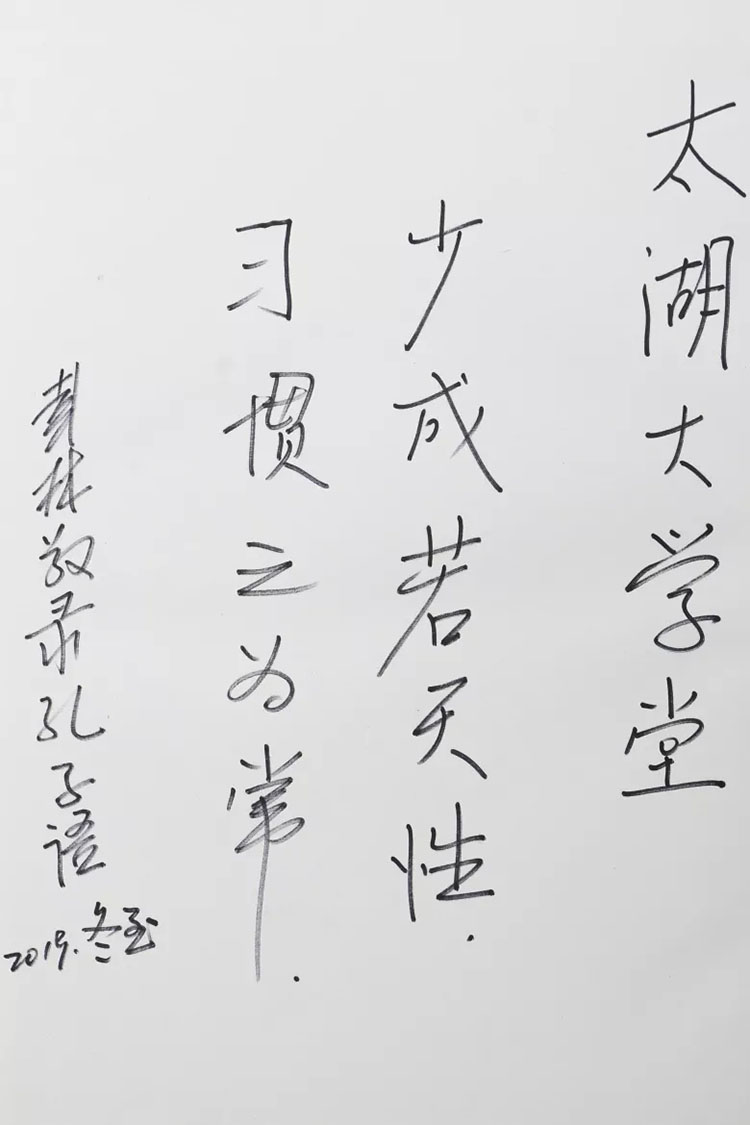 太湖大学堂
少成若天性.
习惯之为常.
彭林敬录孔子语
2019.冬至